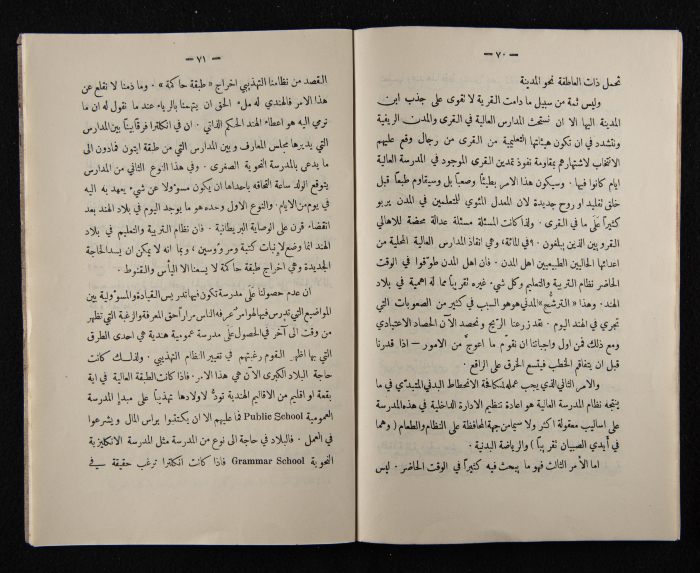 — ٧٠ —
تحمل ذات العاطفة نحو المدينة
وليس ثمة من سبيل ما دامت القرية لا تقوى على جذب ابن
المدينة اليها الا ان نستحث المدارس العالية في القرى والمدن الريفية
ونتشدد في ان تكون هيئاتها التعليمية من القرى من رجال وقع عليهم
الانتخاب لاشتهارهم بمقاومة نفوذ تمدين القرى الموجود في المدرسة العالية
ايام كانوا فيها . وسيكون هذا الامر بطيئاً وصعباً بل وسيقاوم طبعاً قبل
خلق تقليد او روح جديدة لان المعدل المئوي للمتعلمين في المدن يربو
كثيراً على ما في القرى . ولذا كانت المسئلة مسئلة عدالة محضة للاهالي
القرويين الذين يبلغون ٩٠ في المائة، وهي انقاذ المدارس العالية المحلية من
اعدائها الحاليين الطبيعيين اهل المدن . فان اهل المدن طوّقوا في الوقت
الحاضر نظام التربية والتعليم وكل شيء غيره تقريباً مما له اهمية في بلاد
الهند . وهذا « الترشُّح » المدني هو السبب في كثير من الصعوبات التي
تجري في الهند اليوم . لقد زرعنا الريح ونحصد الآن الحصاد الاعتيادي
ومع ذلك فمن اول واجباتنا ان نقوّم ما اعوجّ من الامور – اذا قدرنا
قبل ان يتفاقم الخطب فيتسع الخرق على الراقع .
والامر الثاني الذي يجب عمله لمكافحة الانحطاط البدني المتبدّي في ما
ينتجه نظام المدرسة العالية هو اعادة تنظيم الادارة الداخلية في هذه المدرسة
على اساليب معقولة اكثر ولا سيما من جهة المحافظة على النظام والطعام ( وهما
في أيدي الصبيان تقريباً ) والرياضة البدنية .
اما الأمر الثالث فهو ما يبحث فيه كثيراً في الوقت الحاضر . ليس
— ٧١ —
القصد من نظامنا التهذيبي اخراج « طبقة حاكمة » . وما دمنا لا نقلع عن
هذا الامر فالهندي له ملء الحق ان يتهمنا بالرياء عند ما نقول له ان ما
نرمي اليه هو اعطاء الهند الحكم الذاتي . ان في انكلترا فرقاً بيناً بين المدارس
التي يديرها مجلس المعارف وبين المدارس التي من طبقة ايتون فما دون الى
ما يدعى بالمدرسة النحوية الصغرى . وفي هذا النوع الثاني من المدارس
يتوقع الولد ساعة التحاقه باحداها ان يكون مسؤولا عن شيء يعهد به اليه
في يوم من الايام . والنوع الاول وحده هو ما يوجد اليوم في بلاد الهند بعد
انقضاء قرن على الوصاية البريطانية . فان نظام التربية والتعليم في بلاد
الهند انما وضع لإنبات كتبة ومرؤوسين ، وبما انه لا يمكن ان يسد الحاجة
الجديدة وهي اخراج طبقة حاكمة لا يسعنا الا اليأس والقنوط .
أن عدم حصولنا على مدرسة تكون فيها تدريس القيادة والمسؤولية بين
المواضيع التي تدرس فيها لهو امر عرفه الناس مراراً حق المعرفة والرغبة التي تظهر
من وقت الى آخر في الحصول على مدرسة عمومية هندية هي احدى الطرق
التي بها اظهر القوم رغبتهم في تغيير النظام التهذيبي . ولذلك كانت
حاجة البلاد الكبرى الآن هي هذا الامر . فاذا كانت الطبقة العالية في اية
بقعة او اقليم من الاقاليم الهندية تودُّ لاولادها تهذيباً على مبدإ المدرسة
العمومية Public School فما عليهم الا ان يكتتبوا براس المال ويشرعوا
في العمل . فالبلاد في حاجة الى نوع من المدرسة مثل المدرسة الانكليزية
النحوية Grammar School فاذا كانت انكلترا ترغب حقيقة في